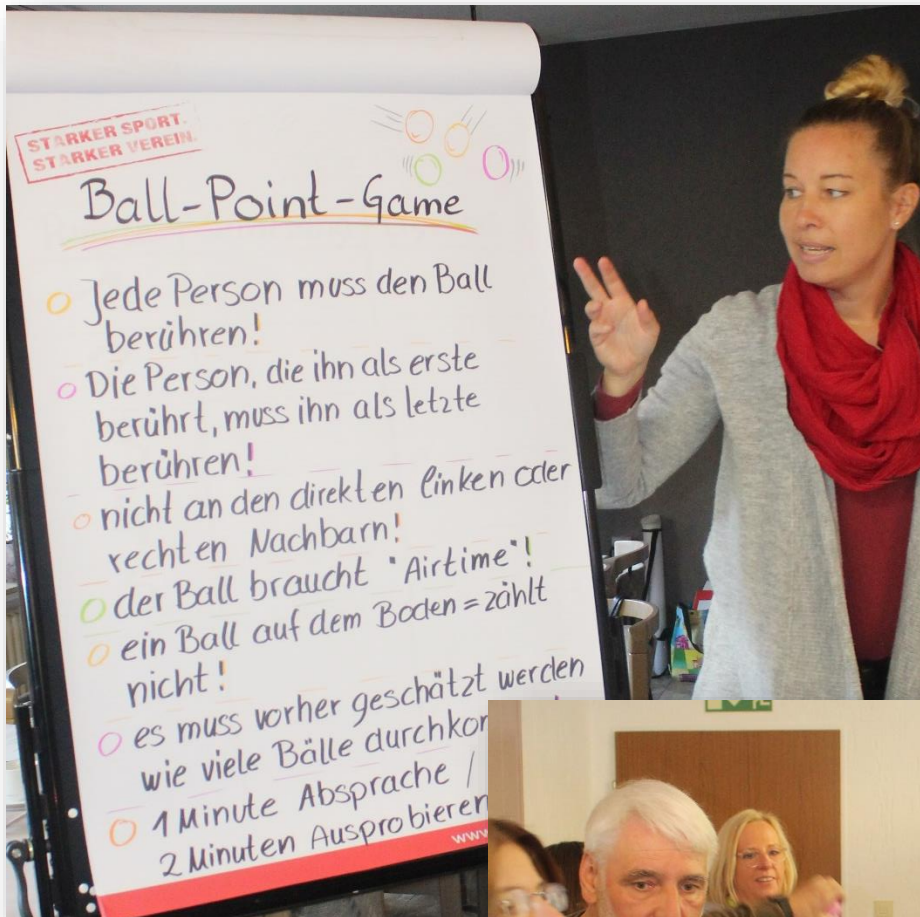 STARKER SPORT.
STARKER VEREIN.
Ball-Point-Game
Jede Person muss den Ball
berühren!
Die Person, die ihn als erste
berührt, muss ihn als letzte
berühren!
nicht an den direkten linken oder
rechten Nachbarn!
der Ball braucht "Airtime"!
ein Ball auf dem Boden = zählt
nicht!
es muss vorher geschätzt werden
wie viele Bälle
1 Minute Absprache /
2 Minuten Ausprobieren
www.